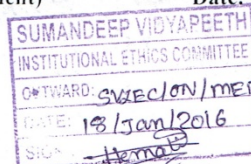 ent) Date:
SUMANDEEP VIDYAPEETH
INSTITUTIONAL ETHICS COMMITTEE
OUTWARD: SVIEC/ON/MEI
DATE: 18/Jan/2016
SIGN Hemal